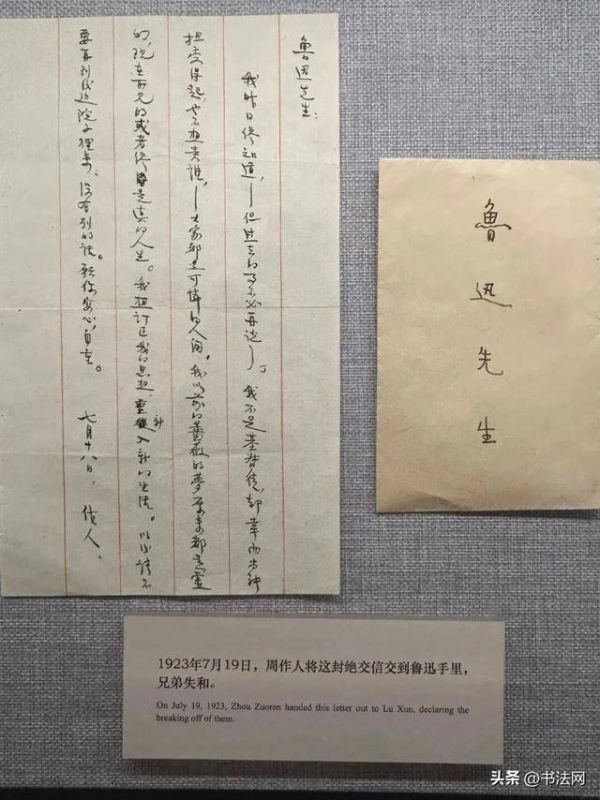 魯迅先生：
我昨日纔知道，——但過去的事不必再說了。我不是基督徒，却幸而尚能
担受得起，也不想責誰，——大家都是可憐的人間。我以前的薔薇的夢原来都是虚
幻，現在所見的或者纔是真的人生。我想訂正我的思想，重新入新的生活。以後請不
要再到後邊院子裡来，没有别的話。願你安心，自重。 七月十八日，作人。
魯迅先生
1923年7月19日，周作人将这封绝交信交到鲁迅手里，
兄弟失和。
On July 19, 1923, Zhou Zuoren handed this letter out to Lu Xun, declaring the
breaking off of them.
头条 @书法网